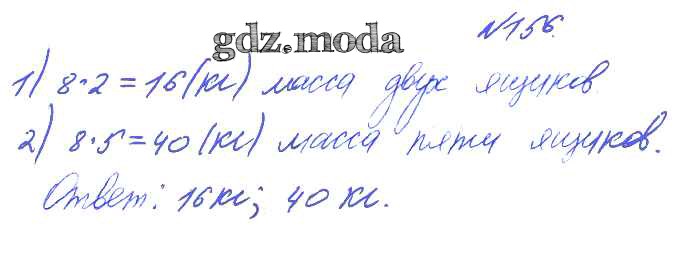 №156.
gdz.moda
1) 8·2=16(кг) масса двух ящиков
2) 8·5=40(кг) масса пяти ящиков.
Ответ: 16кг; 40 кг.